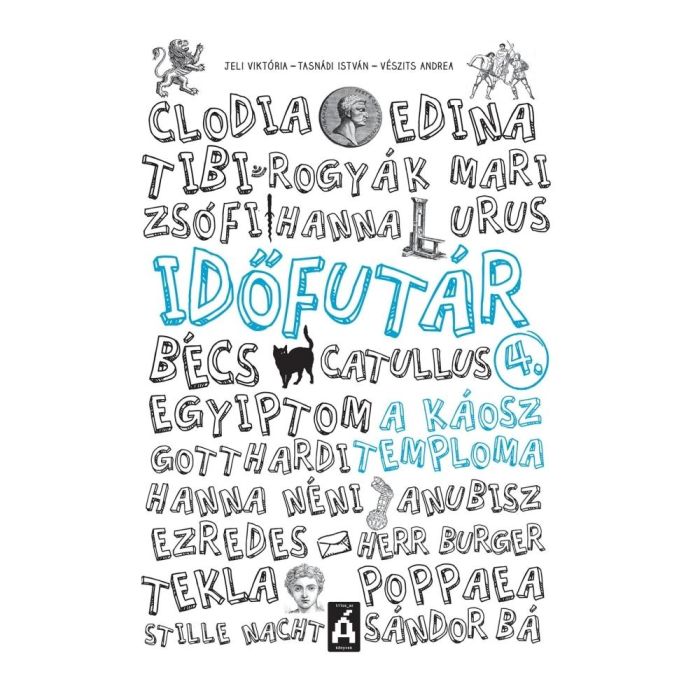 JELI VIKTÓRIA – TASNÁDI ISTVÁN – VÉSZITS ANDREA
CLODIA EDINA
TIBI ROGYÁK MARI
ZSÓFI HANNA URUS
IDŐFUTÁR
BÉCS CATULLUS 4.
EGYIPTOM A KÁOSZ
GOTTHARDI TEMPLOMA
HANNA NÉNI ANUBISZ
EZREDES HERR BURGER
TEKLA POPPAEA
STILLE NACHT Á SÁNDOR BÁ
könyvek